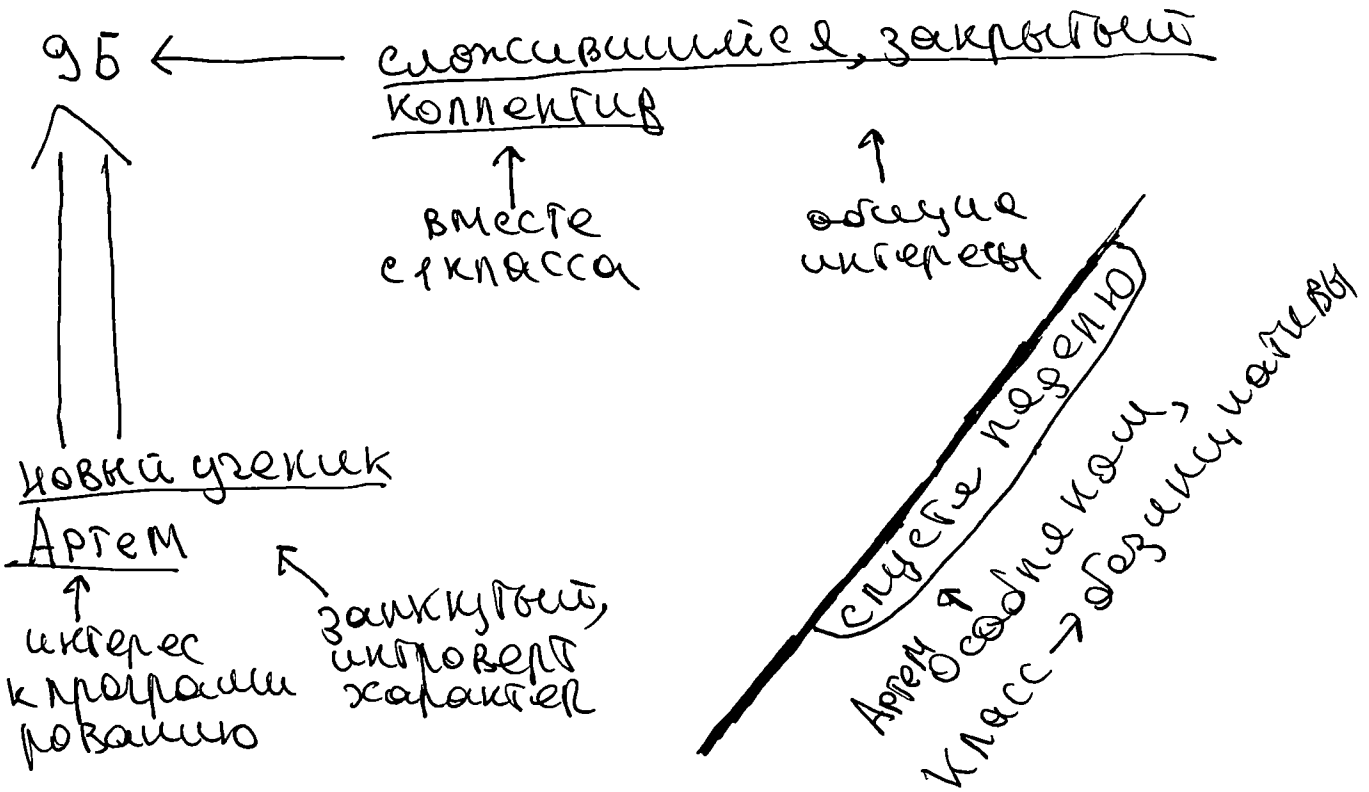 9Б ← сложившийся, закрытый
коллектив
вместе
с 1 класса
общие
интересы
новый ученик
Артем
интерес
к программи
рованию
замкнутый,
интроверт
характер
спустя неделю
Артем → особняком,
Класс → без инициативы